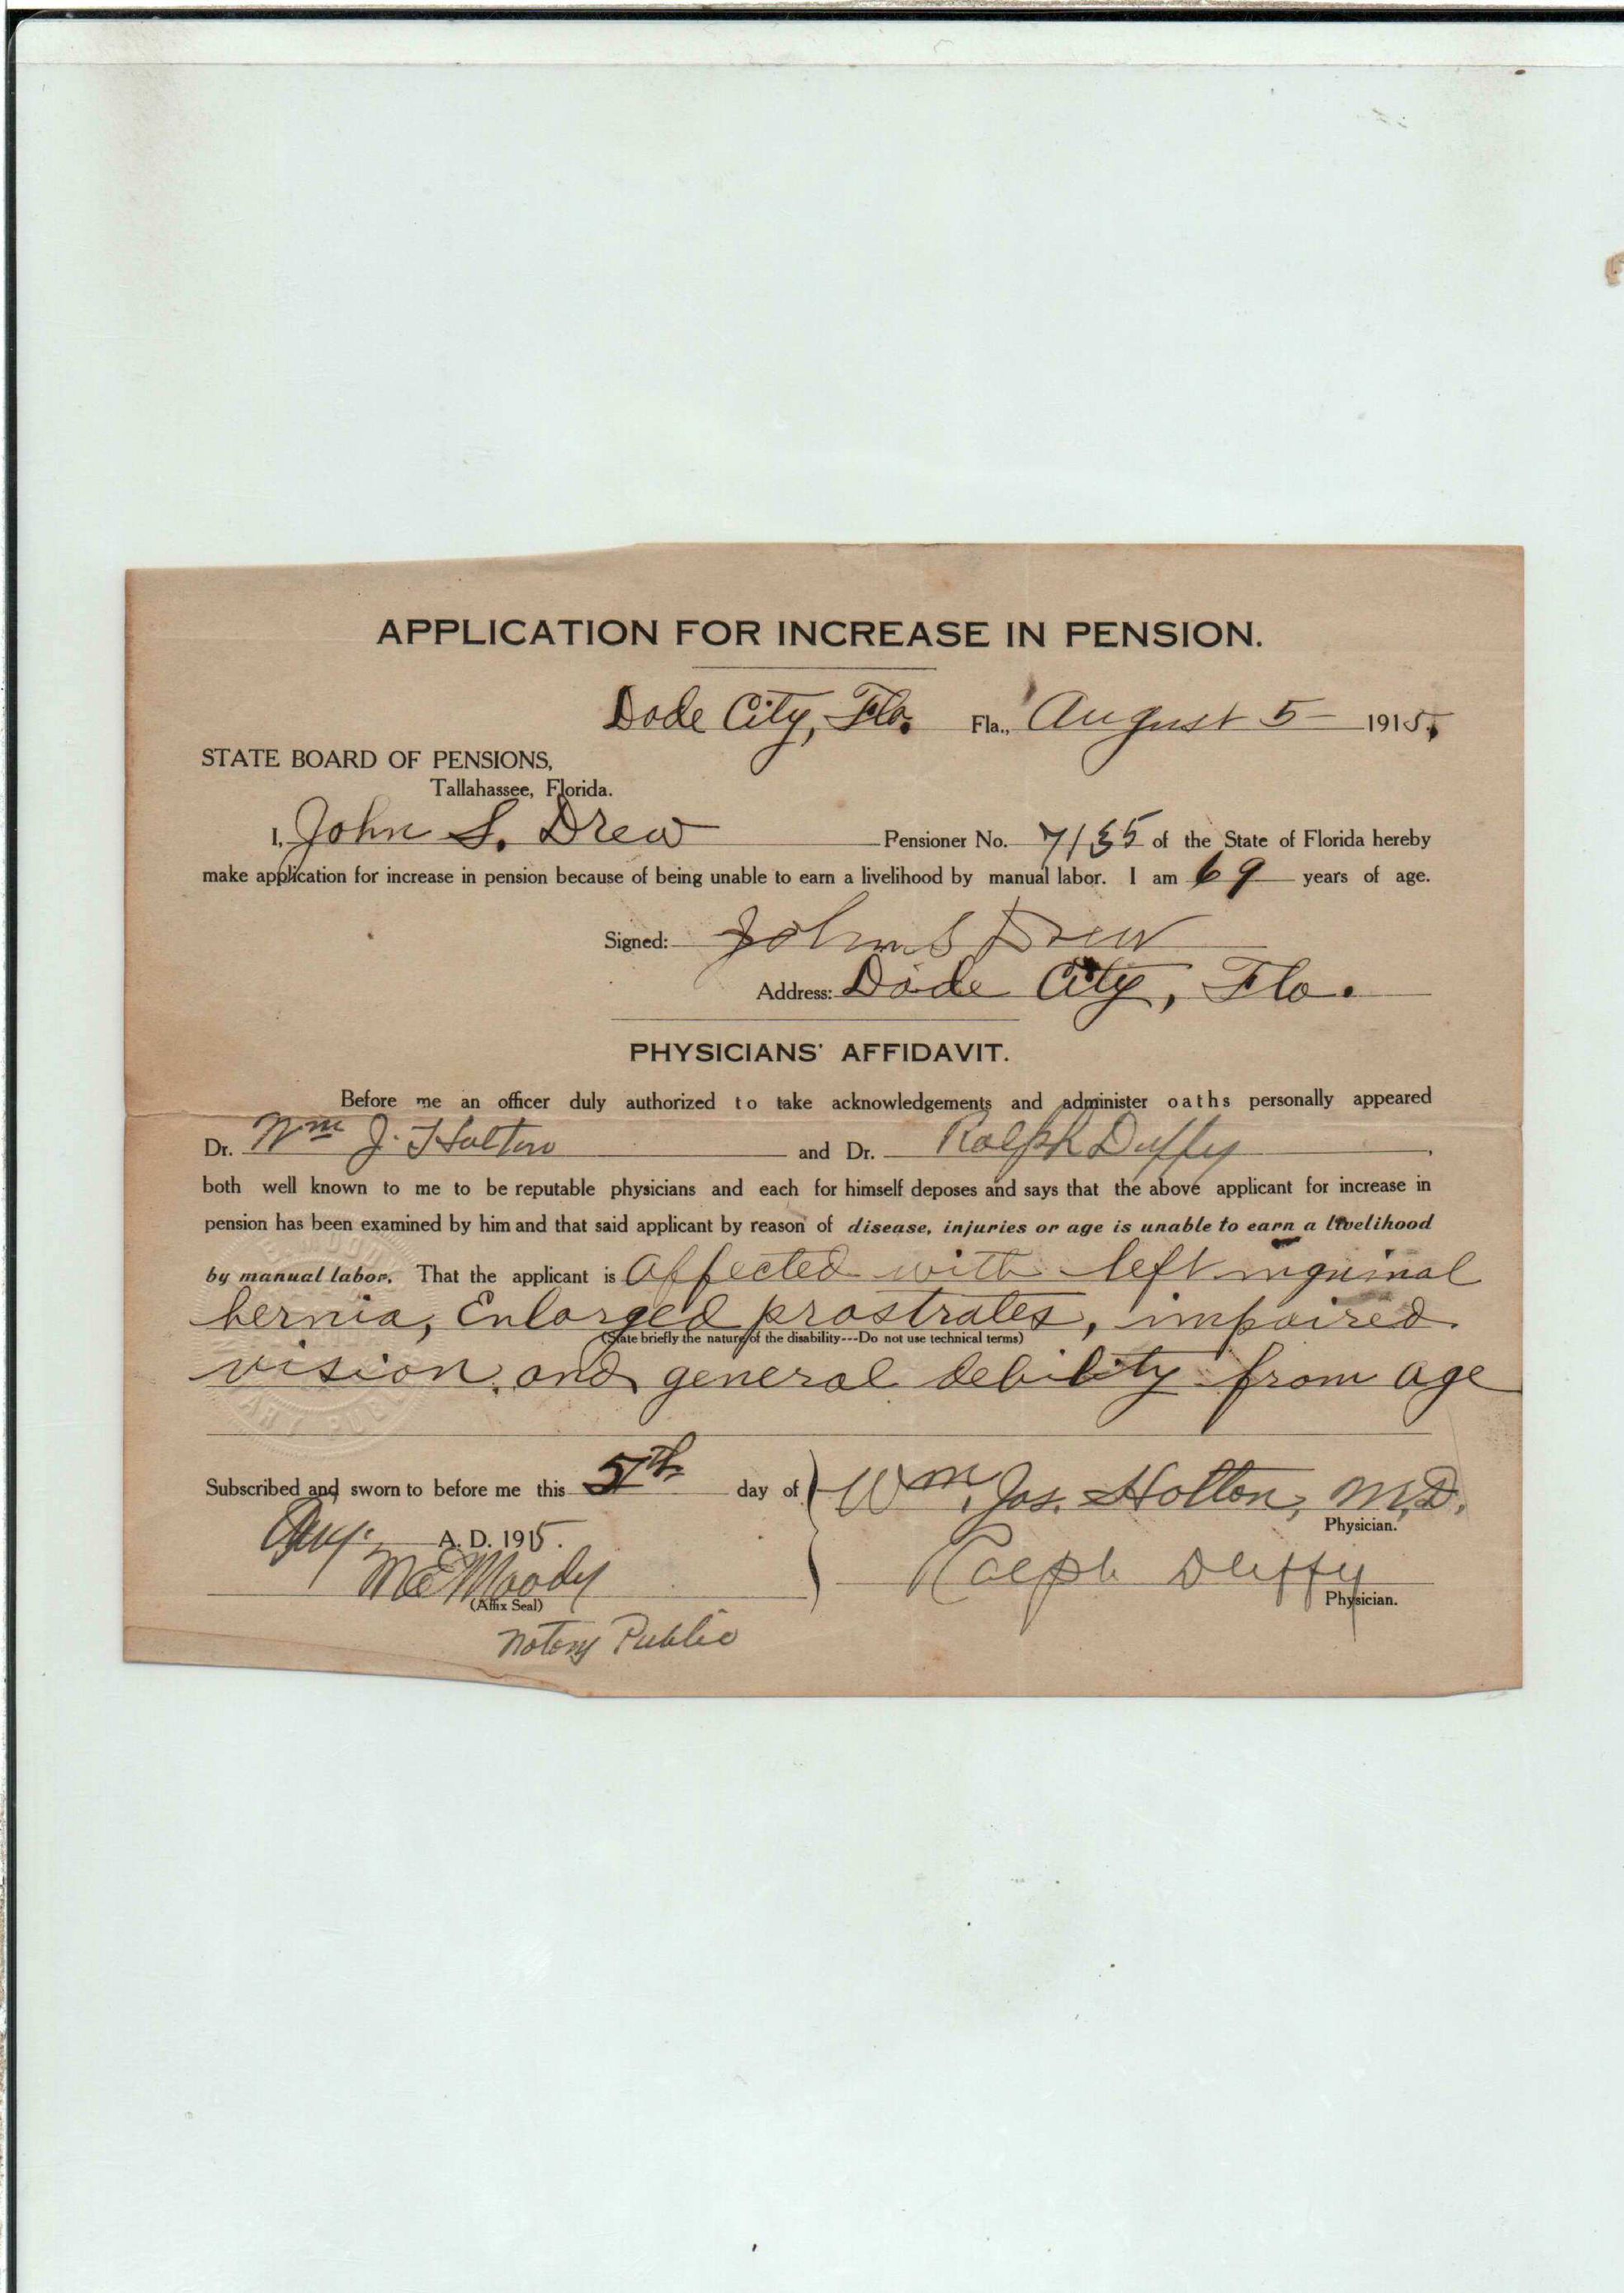 APPLICATION FOR INCREASE IN PENSION.
Dade City, Fla. Fla., August 5 1915.
STATE BOARD OF PENSIONS,
Tallahassee, Florida.
I, John S. Drew Pensioner No. of the State of Florida hereby
make application for increase in pension because of being unable to earn a livelihood by manual labor. I am 69 years of age.
Signed: John S Drew
Address: Dade City, Fla.
PHYSICIANS' AFFIDAVIT.
Before me an officer duly authorized to take acknowledgements and administer oaths personally appeared
Dr. Wm J. Holton and Dr. Ralph Duffy,
both well known to me to be reputable physicians and each for himself deposes and says that the above applicant for increase in
pension has been examined by him and that said applicant by reason of disease, injuries or age is unable to earn a livelihood
by manual labor. That the applicant is affected with left inguinal
hernia, Enlarged prostrates, impaired
(State briefly the nature of the disability---Do not use technical terms)
vision, and general debility from age
Subscribed and sworn to before me this 5th day of Wm. Jos. Holton, M.D.
Physician.
Aug. A. D. 1915.
M E Moody Ralph Duffy
(Affix Seal) Physician.
Notary Public